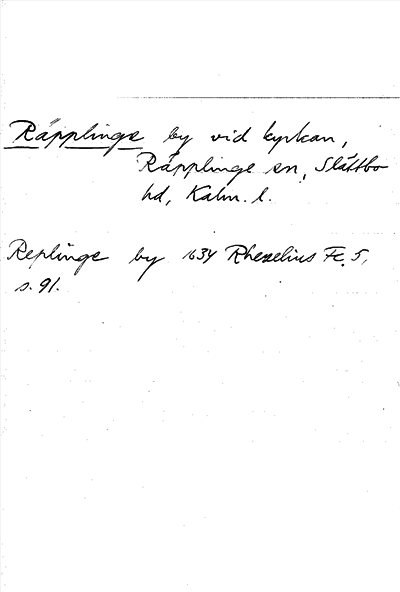 Räpplinge by vid kyrkan,
Räpplinge sn, Slättbo
hd, Kalm. l.
Replinge by 1634 Rhezelius Fc. 5,
s. 91.